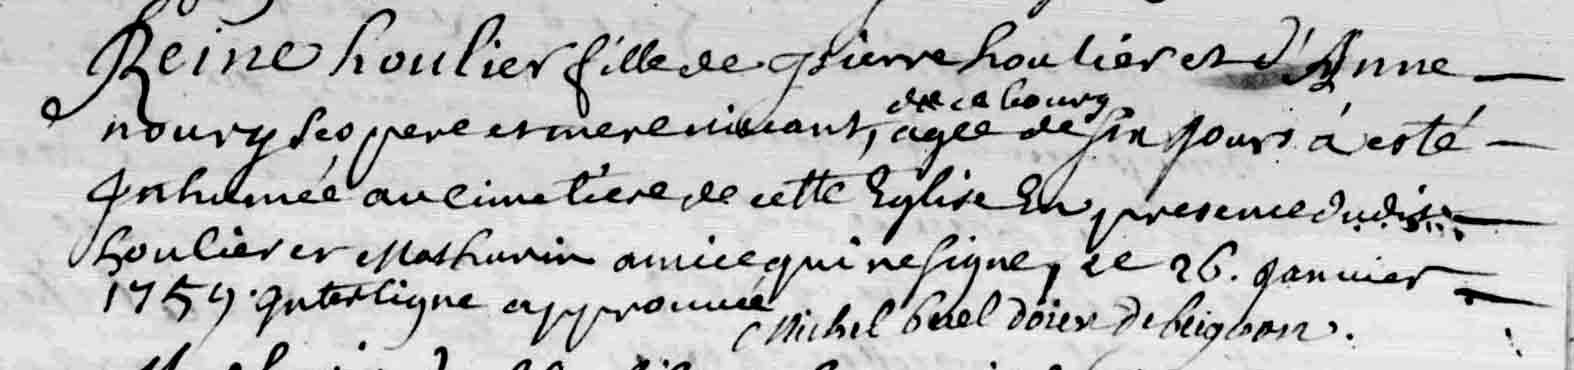 Reine houlier fille de pierre houlier et d'Anne
noury ses pere et mere vivant, agée de six jours à esté
de ce bourg
Inhumée au cimetiere de cette Eglise En presence dudit
houlier et Mathurin amice qui ne signe, ce 26. Janvier
1759. Interligne approuvée
Michel buel doien de beignon.